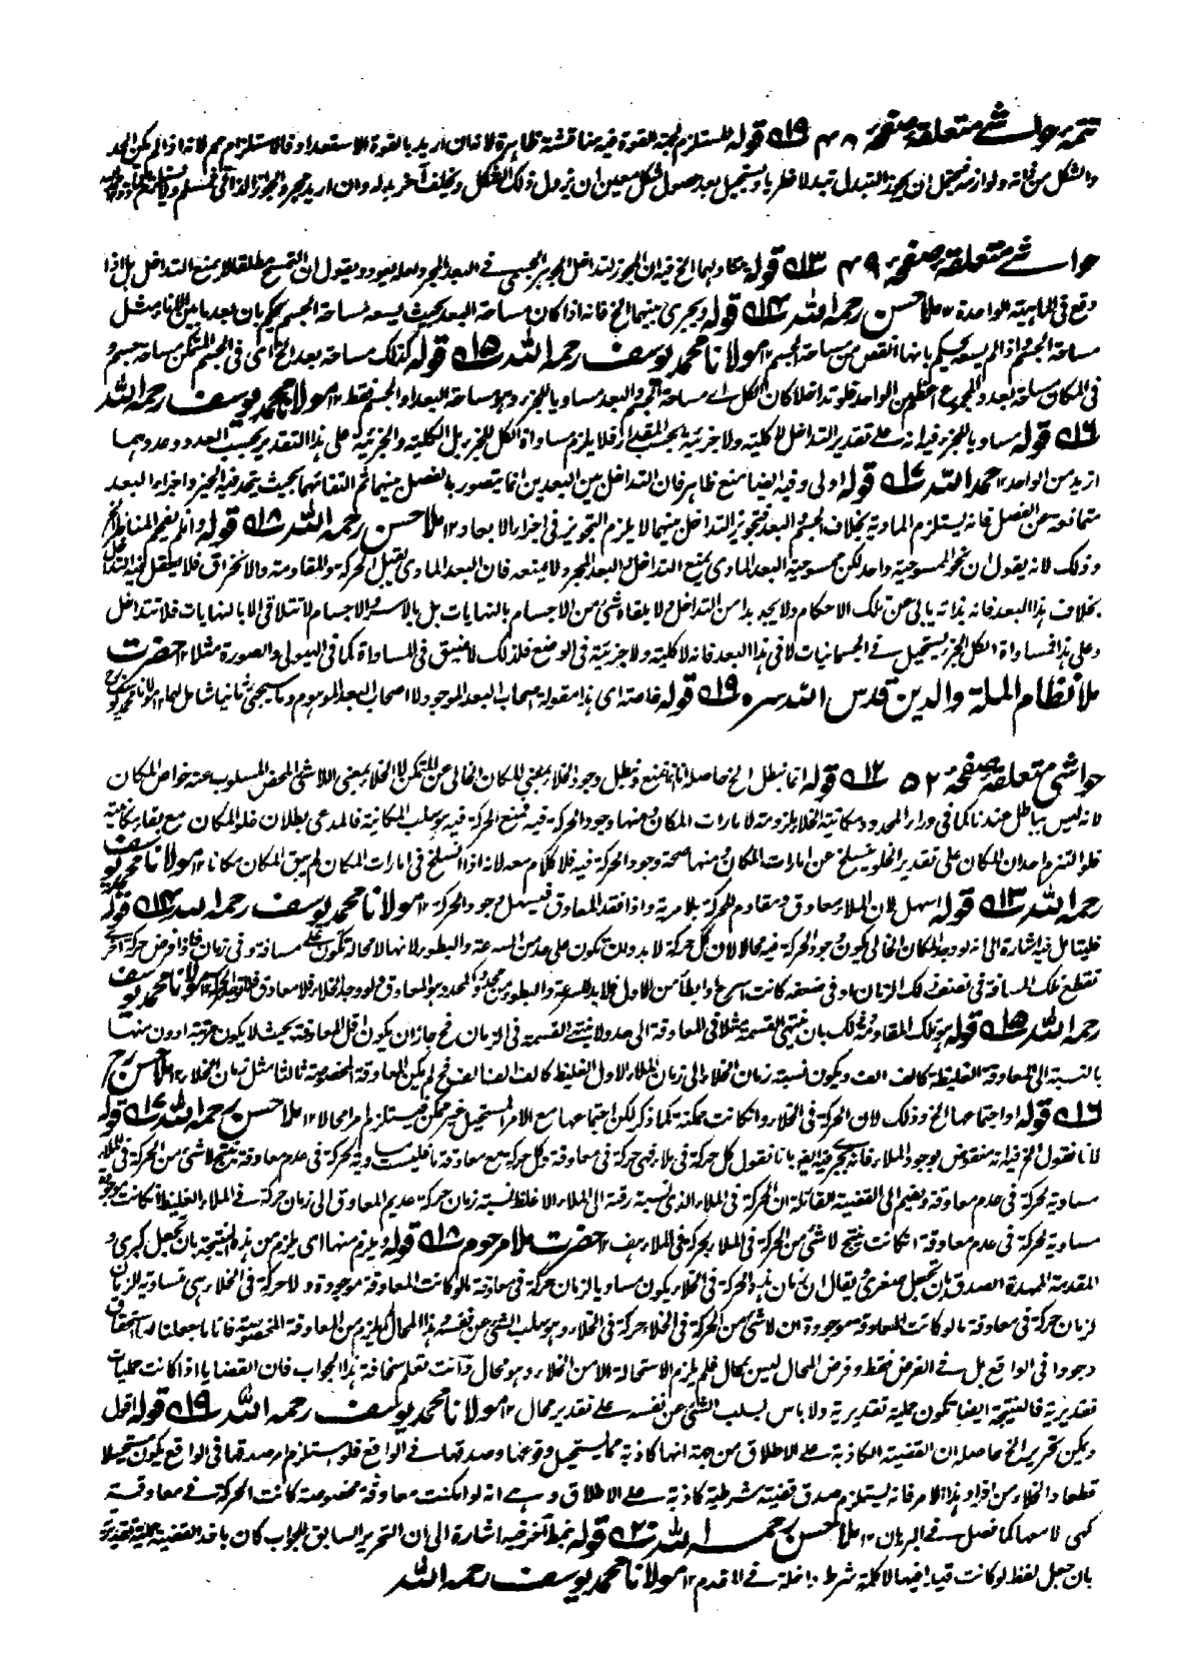 تتمہ حواشے متعلقہ صفحہ ۴۸ ۱۹ قولہ المستلزم لجہۃ القوۃ فیہ مناقشۃ ظاہرۃ لانہ ان ارید بالقوۃ الاستعداد فالاستلزام مم لانہ اذا لم یکن الجسد
والشکل من ذاتہ ولوازمہ فیحتمل ان یجوز التبدل تبدلا نظریا ویستحیل بعد حصول شکل معین ان یزول ذلک الشکل ویخلف آخر بدلہ وان ارید مجرد الجواز الذاتی فمسلم
حواشے متعلقہ صفحہ ۴۹ ۱۳ قولہ الخ فیہ ان المجوز لتداخل الجوہر الجسمی فے البعد المجرد لعلہ یعود ویقول ان التجسم مطلقا لا یمنع التداخل بل اذا
وقع فی الماہیۃ الواحدۃ ۱۲ ملا حسن رحمہ اللہ ۱۴ قولہ ویجری بینہما الخ فانہ اذا کان مساحۃ البعد بحیث یسعہ مساحۃ الجسم یحکم بان بعد ما بین الاناء مثل
مساحۃ الجسم واذا لم یسعہ یحکم بانہا انقص من مساحۃ الجسم ۱۲ مولانا محمد یوسف رحمہ اللہ ۱۵ قولہ کذلک مساحۃ بعد الخ ای فی الجسم المتمکن مساحۃ جسم و
فی المکان مساحۃ بعد والمجموع اعظم من الواحد فلو تداخلا کان الکل اے مساحۃ الجسم والبعد مساویا للجزء وہو مساحۃ البعد او الجسم فقط ۱۲ مولانا محمد یوسف رحمہ اللہ
۱۶ قولہ مساویا للجزء فیہ انہ علے تقدیر التداخل لا کلیۃ ولا جزئیۃ بحسب المقدار فلا یلزم مساواۃ الکل للجزء بل الکلیۃ والجزئیۃ علی ہذا التقدیر بحسب العدد وعددہما
ازید من الواحد ۱۲ حمد اللہ ۱۷ قولہ اولی وفیہ ایضا منع ظاہر فان التداخل بین البعدین انما یتصور بالفصل بینہما ثم التقائہما بحیث یتحد فیہ الحیز واجزاء البعد
متمانعۃ عن الفصل فانہ یستلزم المادیۃ بخلاف الجسم والبعد فتجویز التداخل بینہما لا یلزم التجویز فی اجزاء الابعاد ۱۲ ملا حسن رحمہ اللہ ۱۸ قولہ وانہم یفحم المناظر الخ
وذلک لانہ یقول ان نحو المسوحیۃ واحد لکن ممسوحیۃ البعد المادی یمنع التداخل والبعد المجرد لا یمنعہ فان البعد المادی یقبل الحرکۃ والمقاومۃ والانخراق فلا یعقل فیہ التداخل
بخلاف ہذا البعد فانہ بذاتہ یابی عن تلک الاحکام ولا یجد بدا من التداخل ولا یلقاہ شئ من الاجسام بالنہایات بل بالاسر والاجسام لا تتلاقی الا بالنہایات فلا تتداخل
وعلی ہذا فمساواۃ الکل الجزء یستحیل فے الجسمانیات لا فی ہذا البعد فانہ لا کلیۃ ولا جزئیۃ فی الوضع فلذلک لا ضیق فی المساواۃ کما فی الہیولی والصورۃ مثلا ۱۲ حضرت
ملا نظام الملۃ والدین قدس اللہ سرہ ۱۹ قولہ خاصۃ ای ہذا مقولۃ اصحاب البعد الموجود لا اصحاب البعد الموہوم وما سیجئ ثانیا شامل لہما ۱۲ مولانا محمد یوسف
حواشی متعلقہ صفحہ ۵۲ ۱۲ قولہ انما نبطل الخ حاصلہ انا نمنع ونبطل وجود الخلاء بمعنی المکان الخالی عن المتمکن لا الخلاء بمعنی اللاشئ المحض المسلوب عنہ خواص المکان
لانہ لیس بباطل عندنا کما فی وراء المحدد ومکانیۃ الخلاء ملزومۃ لامارات المکان ومنہا وجود الحرکۃ فیہ فمنع الحرکۃ فیہ یوجب سلب المکانیۃ فالمدعی بطلان خلو المکان مع بقاء مکانیۃ
فلو التزم احد ان المکان علی تقدیر الخلو ینسلخ عن امارات المکان ومنہا صحۃ وجود الحرکۃ فیہ فلا کلام معہ لانہ اذا انسلخ فی امارات المکان لم یبق المکان مکانا ۱۲ مولانا محمد یوسف
رحمہ اللہ ۱۳ قولہ اسہل لان الملاء معاوق ومقاوم للحرکۃ بلا مریۃ واذا فقد المعاوق فیسہل وجود الحرکۃ ۱۲ مولانا محمد یوسف رحمہ اللہ ۱۴ قولہ
فلیتامل فیہ اشارۃ الی انہ لو وجد المکان الخالی یکون وجود الحرکۃ فیہ محالا لان کل حرکۃ لا بد وان تکون علی حد من السرعۃ والبطوء لانہا لا محالۃ تکون علی مسافۃ وفی زمان فاذا فرض حرکۃ اخری
تقطع تلک المسافۃ فی نصف ذلک الزمان او فی ضعفہ کانت اسرع وابطأ من الاول فلا بد للسرعۃ والبطوء من محدد والمحدد ہو المعاوق ولو وجد الخلاء فلا معاوق فلا توجد الحرکۃ ۱۲ مولانا محمد یوسف
رحمہ اللہ ۱۵ قولہ تلک المقاومۃ وذلک بان ینتہی القسمۃ مثلا فی المعاوقۃ الی حد ولا ینتہی القسمۃ فی الزمان فح جاز ان یکون اقل المعاوقۃ بحیث لا یکون مرتبۃ ادون منہا
بالنسبۃ الی المعاوقۃ الغلیظۃ کالف الف ویکون نسبۃ زمان الخلاء الی زمان الملاء الاول الغلیظ کالف الف الف فح لم یکن المعاوقۃ المخصوصۃ فالثا مثل زمان الخلاء ۱۲ ملا حسن رح
۱۶ قولہ او اجتماعہما الخ وذلک لان الحرکۃ فی الخلاء وان کانت ممکنۃ کما ذکر لکن اجتماعہا مع الامر المستحیل غیر ممکن فیستلزم امرا محالا ۱۲ ملا حسن رحمہ اللہ ۱۷ قولہ
لانا نقول الخ فیہ انہ منقوض بوجود الملاء فانہ یجری فیہ ایضا بانا نقول کل حرکۃ فی ملاء فہی حرکۃ فی معاوقۃ وکل حرکۃ مع معاوقۃ ما فلیست مساویۃ لحرکۃ فی عدم معاوقۃ ینتج لاشئ من الحرکۃ فی الملاء
مساویۃ لحرکۃ فی عدم معاوقۃ ویضم الی القضیۃ القائلۃ ان الحرکۃ فی الملاء الذی نسبۃ رقتہ الی الملاء الاغلظ نسبۃ زمان حرکۃ عدیم المعاوق الی زمان حرکۃ فے الملاء الغلیظ لو کانت موجودۃ
مساویۃ لحرکۃ فی عدم معاوقۃ ان کانت ینتج لاشئ من الحرکۃ فی الملاء بحرکۃ فی الملاء ہف ۱۲ حضرت ملا مرحوم ۱۸ قولہ ویلزم منہا ای یلزم من ہذہ النتیجۃ بان تجعل کبری و
المقدمۃ الممہدۃ الصدق بان تجعل صغری ویقال ان زمان ہذہ الحرکۃ فی الخلاء یکون مساویا لزمان حرکۃ فی معاوقۃ ما لو کانت المعاوقۃ موجودۃ ولا حرکۃ فی الخلاء ہی مساویۃ للزمان
لزمان حرکۃ فی معاوقۃ ما لو کانت المعاوقۃ موجودۃ ان لاشئ من الحرکۃ فی الخلاء حرکۃ فی الخلاء وہو سلب الشئ عن نفسہ وہذا المحال لم یلزم من المعاوقۃ المخصوصۃ فانا ما جعلنا لہا استحقاق
وجودا فی الواقع بل فے الفرض فقط وفرض المحال لیس بمحال فلم یلزم الاستحالۃ الا من الخلاء وہو محال وانت تعلم سخافۃ ہذا الجواب فان القضایا اذا کانت حملیات
تقدیریۃ فالنتیجۃ ایضا تکون حملیۃ تقدیریۃ ولا باس بسلب الشئ عن نفسہ علے تقدیر محال ۱۲ مولانا محمد یوسف رحمہ اللہ ۱۹ قولہ اقول
ویمکن تحریر الخ حاصلہ ان القضیۃ الکاذبۃ علے الاطلاق من جہۃ انہا کاذبۃ مما یستحیل وقوعہا وصدقہا فے الواقع فلو استلزم امر صدقہا فی الواقع یکون مستحیلا
قطعا والخلاء من افراد ہذا الامر فانہ یستلزم صدق قضیۃ شرطیۃ کاذبۃ علے الاطلاق وہے انہ لو امکنت معاوقۃ مخصوصۃ کانت الحرکۃ فے معاوقۃ
کہی لا معہا کما فصل فے البرہان ۱۲ ملا حسن رحمہ اللہ ۲۰ قولہ نمط آخر فیہ اشارۃ الی ان التحریر السابق للجواب کان باخذ القضیۃ حملیۃ تقدیریۃ
بان جعل لفظ لو کانت قیدا فیہا لا کلمۃ شرط داخلۃ فے المقدم ۱۲ مولانا محمد یوسف رحمہ اللہ